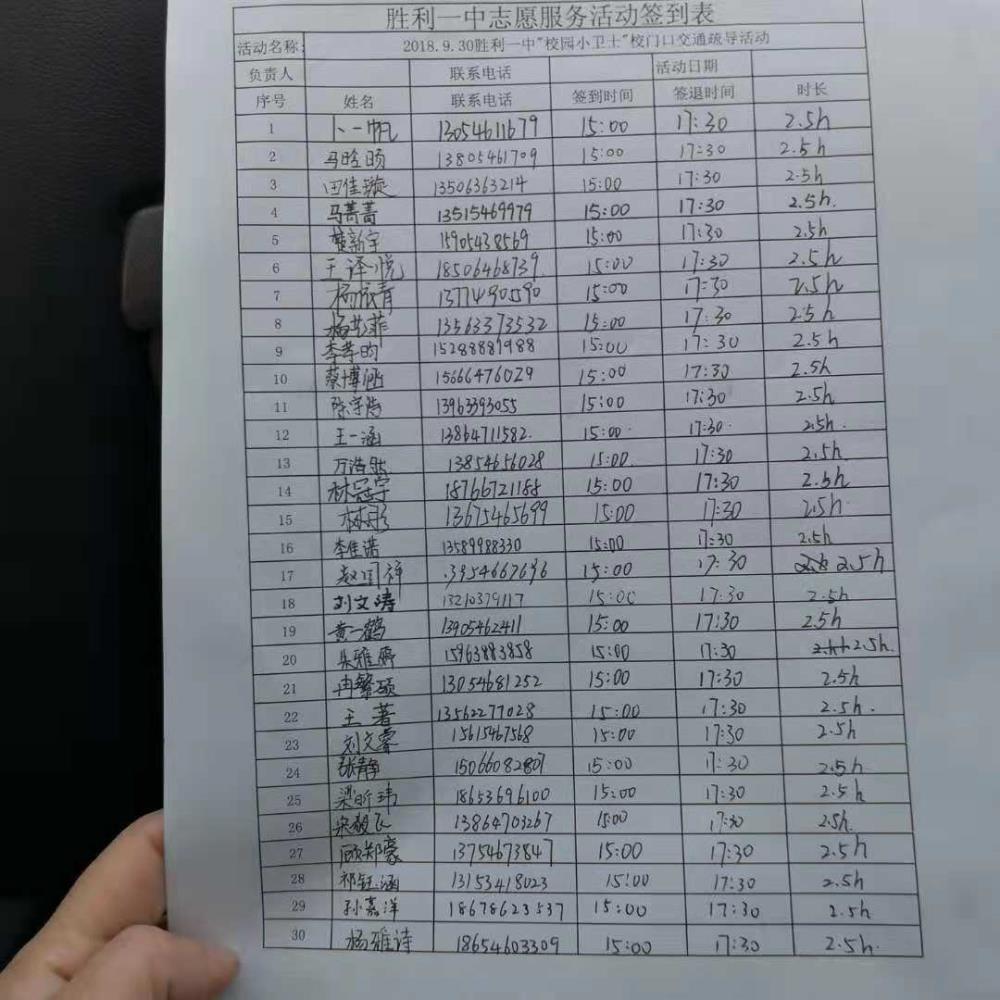 胜利一中志愿服务活动签到表
活动名称: 2018.9.30胜利一中"校园小卫士"校门口交通疏导活动
负责人 联系电话 活动日期
序号 姓名 联系电话 签到时间 签退时间 时长
1 卜一帆 13054611679 15:00 17:30 2.5h
2 马晗旸 13805461709 15:00 17:30 2.5h
3 田佳璇 13506363214 15:00 17:30 2.5h
4 马菁菁 13515469979 15:00 17:30 2.5h.
5 楚新宇 15905438569 15:00 17:30 2.5h
6 王泽悦 18506468739 15:00 17:30 2.5h
7 杨依青 13771490590 15:00 17:30 2.5h
8 杨艺菲 13563373532 15:00 17:30 2.5h
9 李孝昀 15288881988 15:00 17:30 2.5h
10 蔡博涵 15666476029 15:00 17:30 2.5h
11 13963393055 15:00 17:30 2.5h
12 王一涵 13864711582. 15:00 17:30 2.5h.
13 万浩然 13854656028 15:00 17:30 2.5h
14 林冠宇 18766721188 15:00 17:30 2.5h
15 林彤 13675465699 15:00 17:30 2.5h
16 李佳诺 13589988330 15:00 17:30 2.5h
17 赵国祥 15:00 17:30 2.5h
18 刘文涛 13210379117 15:00 17:30 2.5h
19 黄一鹤 13905462411 15:00 17:30 2.5h
20 15963883858 15:00 17:30 2.5h.
21 冉繁硕 13054681252 15:00 17:30 2.5h
22 王著 13562277028 15:00 17:30 2.5h.
23 刘文睿 15615467568 15:00 17:30 2.5h
24 张静 15066082807 15:00 17:30 2.5h
25 梁昕玮 18653696100 15:00 17:30 2.5h
26 宋毅飞 13864703267 15:00 17:30 2.5h.
27 顾郑豪 13754673847 15:00 17:30 2.5h
28 祁钰涵 13153418023 15:00 17:30 2.5h
29 孙嘉洋 18678623537 15:00 17:30 2.5h
30 杨雅诗 18654603309 15:00 17:30 2.5h.